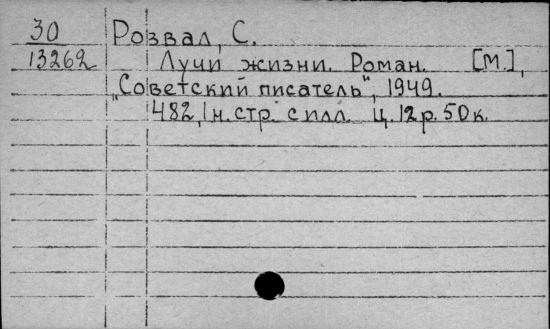 30 Розвал, С.
13262 Лучи жизни. Роман. [М.],
"Советский писатель", 1949.
482, 1 н. стр. с илл. Ц. 12 р. 50 к.